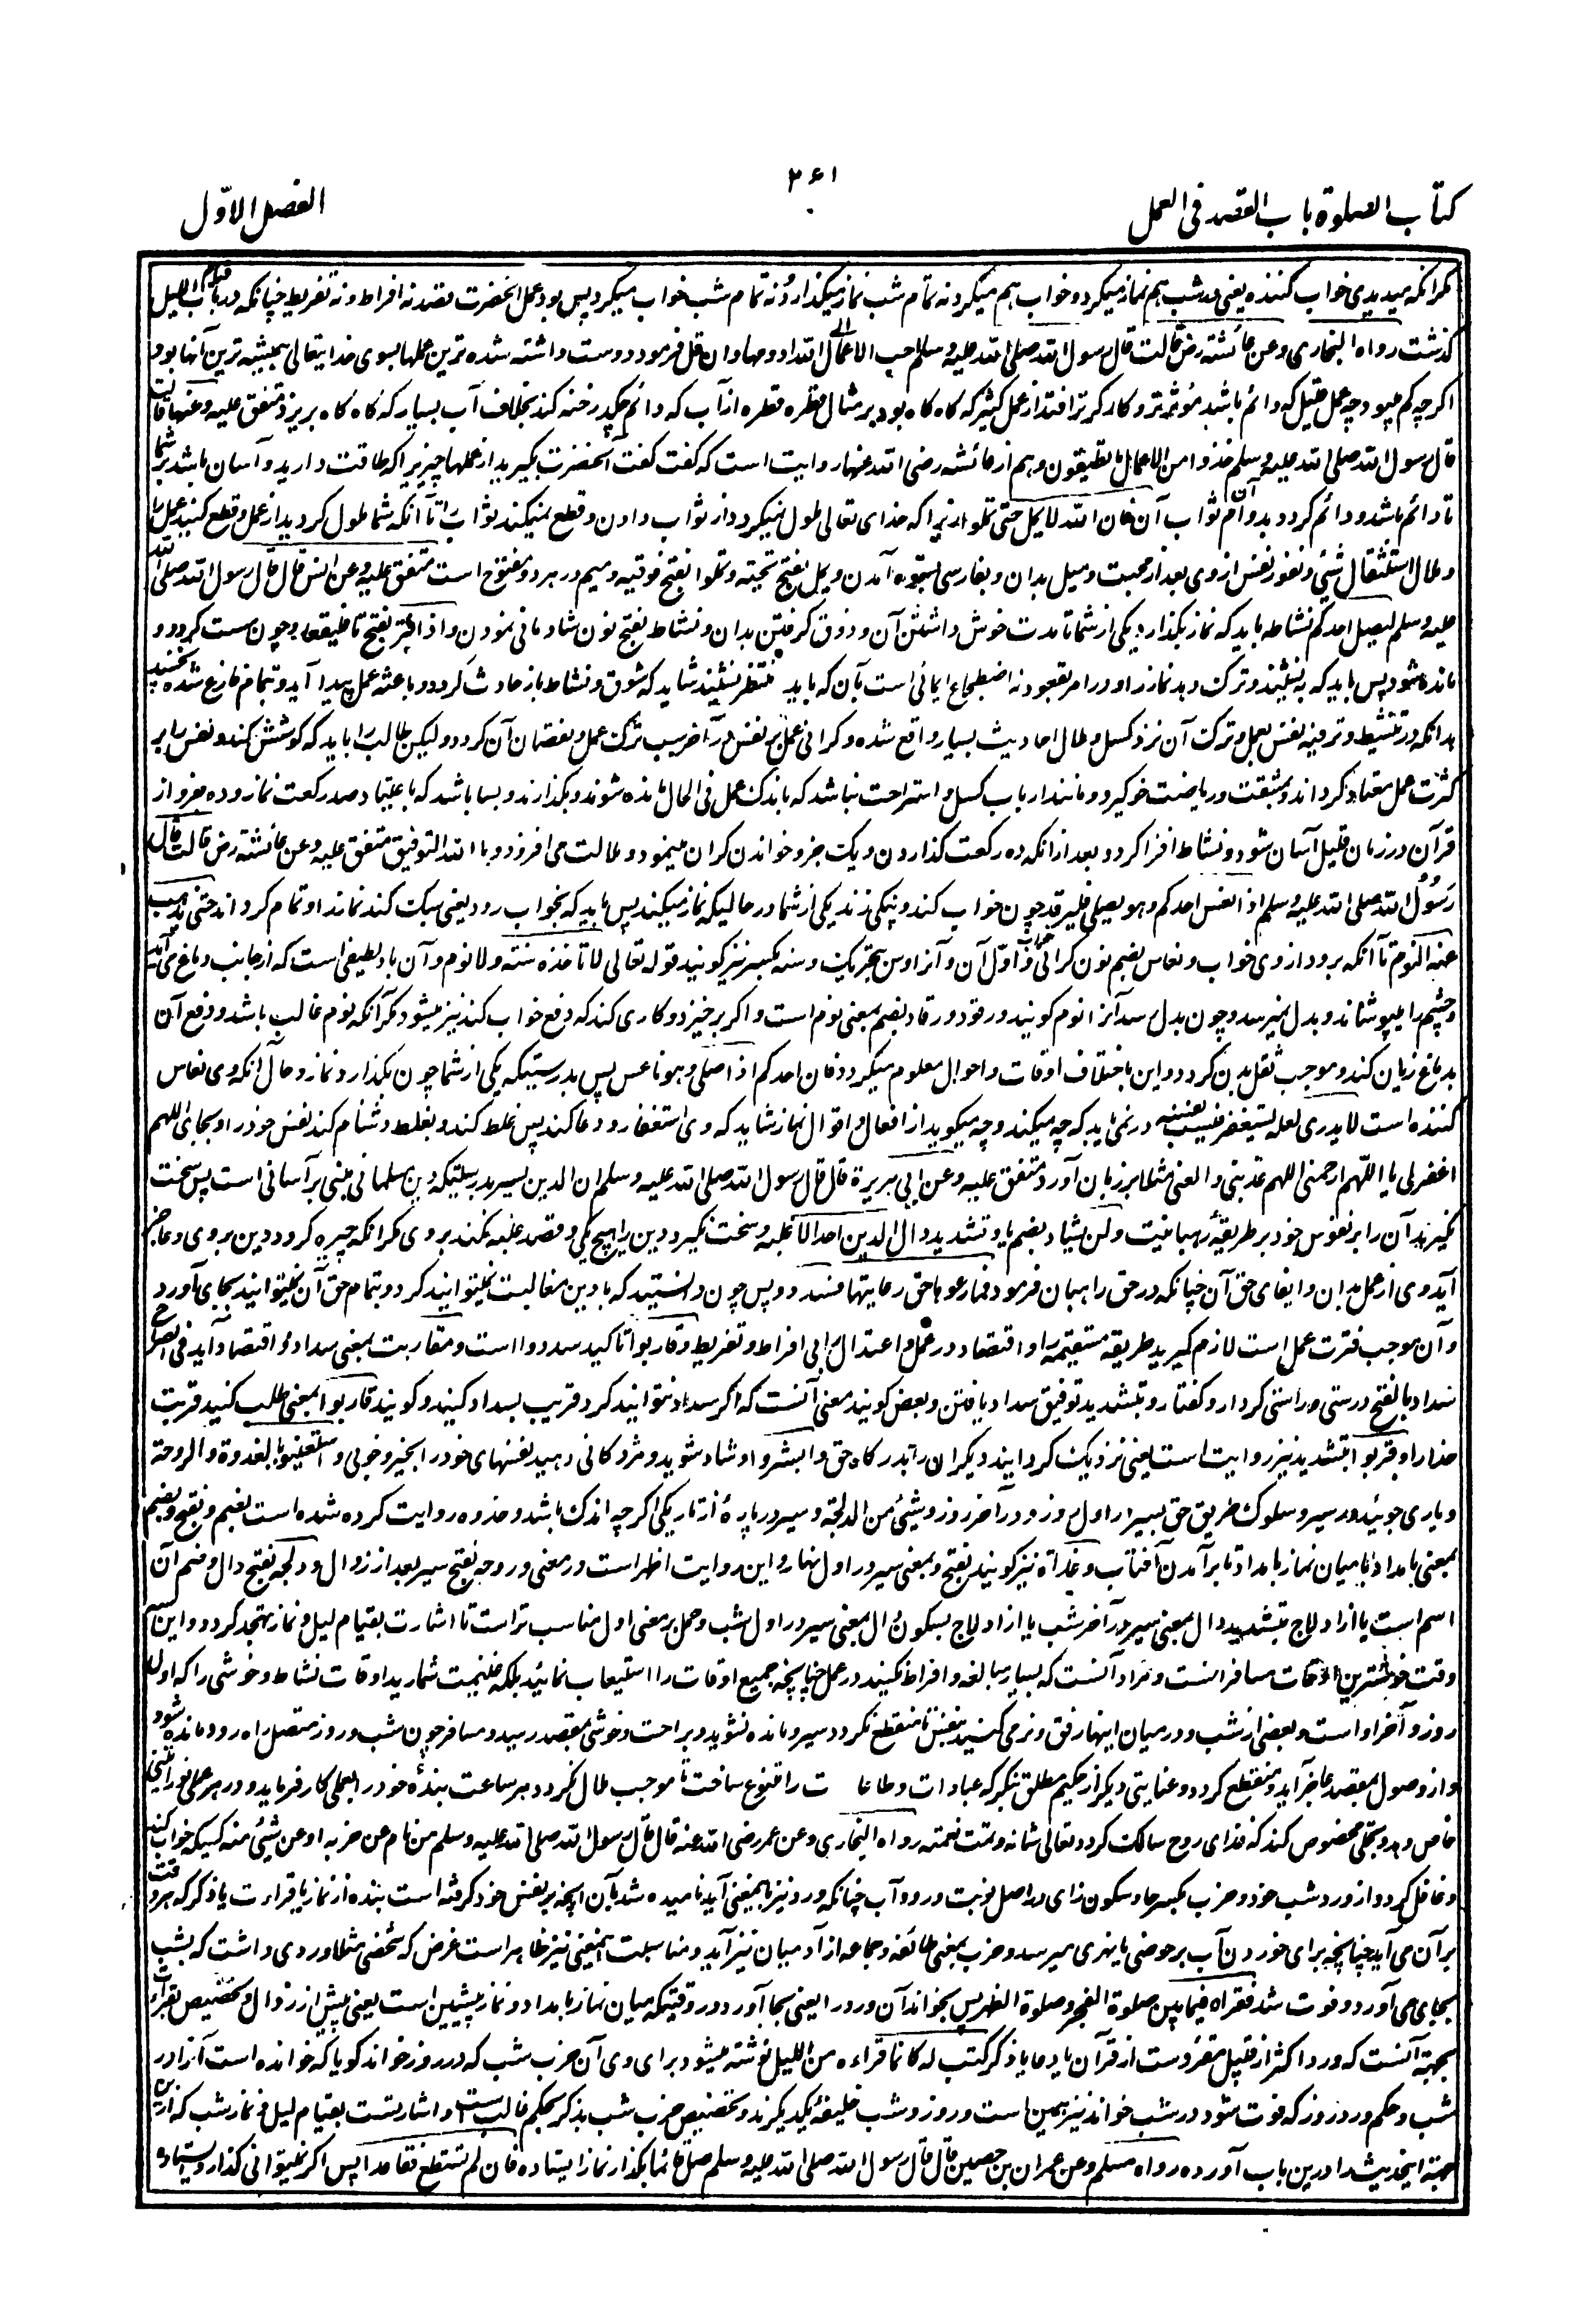 ۲۶۱
کتاب الصلوة باب القصد فی العمل
الفصل الاوّل
مگر آنکه میدیدی خواب کننده یعنی در شب هم نماز میکرد و خواب هم میکرد نه تمام شب نماز میگذارد و نه تمام شب خواب میکرد پس بود عمل آنحضرت قصد نه افراط و نه تفریط چنانکه در باب قیام اللیل
گذشت رواه البخاری و عن عائشة رض قالت قال رسول الله صلی الله علیه وسلم احب الاعمال الی الله ادومها وان قل فرمود دوست داشته شده ترین عملها بسوی خدایتعالی همیشه ترین آنها بود
اگرچه کم بود چه عمل قلیل که دائم باشد مؤثرتر و کارگرتر افتد از عمل کثیر که گاه گاه بود بر مثال قطره قطره از آب که دائم چکد رخنه کند بخلاف آب بسیار که گاه گاه بریزد متفق علیه و عنها قالت
قال رسول الله صلی الله علیه وسلم خذوا من الاعمال ما تطیقون و هم از عائشه رضی الله عنها روایت است که گفت گفت آنحضرت بگیرید از عملها چیزیرا که طاقت دارید و آسان باشد بر شما
تا دائم باشد و دائم گردد بدوام آن ثواب آن فان الله لا یمل حتی تملوا زیرا که خدای تعالی ملول نمیگردد از ثواب دادن و قطع نمیکند ثواب را تا آنکه شما ملول گردید از عمل و قطع کنید عمل را
و ملال استثقال شئ و نفور نفس از وی بعد از محبت و میل بدان و بفارسی بستوه آمدن و یمل بفتح تحتیه و تملوا بفتح فوقیه و میم در هر دو مفتوح است متفق علیه و عن انس قال قال رسول الله صلی الله
علیه وسلم لیصل احدکم نشاطه باید که نماز بگذارد یکی از شما تا مدت خوش داشتن آن و ذوق گرفتن بدان و نشاط بفتح نون شادمانی نمودن و اذا فتر بفتح تا فلیقعد و چون سست گردد و
مانده شود پس باید که بنشیند و ترک دهد نماز را و در امر بقعود نه اضطجاع ایمائی است بآن که باید منتظر نشیند شاید که شوق و نشاط باز حادث گردد و باعثه عمل پیدا آید و تمام فارغ شده نخسپد
بدانکه در تنشیط و ترفیه نفس بعمل و ترک آن نزد کسل و ملال احادیث بسیار واقع شده و گرانی عمل بر نفس در آخر سبب ترک عمل و نقصان آن گردد ولیکن طالب را باید که کوشش کند و نفس را بر
کثرت عمل معتاد گرداند و بمشقت و ریاضت خو گیرد و مانند ارباب کسل و استراحت نباشد که باندک عمل فی الحال مانده شوند و بگذارند و بسا باشد که باعتیاد صد رکعت نماز و ده جزو از
قرآن در زمان قلیل آسان شود و نشاط افزا گردد بعد از آنکه ده رکعت گذاردن و یک جزو خواندن گران مینمود و ملالت می افزود و بالله التوفیق متفق علیه و عن عائشة رض قالت قال
رسول الله صلی الله علیه وسلم اذا نعس احدکم وهو یصلی فلیرقد چون خواب کند و پینکی زند یکی از شما در حالیکه نماز میکند پس باید که بخواب رود یعنی سبک کند نماز را و تمام گرداند حتی یذهب
عنه النوم تا آنکه برود از وی خواب و نعاس بضم نون گرانی خواب و اوّل آن و آنرا وسن بتحریک و سنه بکسر نیز گویند قوله تعالی لا تاخذه سنة ولا نوم و آن باد لطیفی است که از جانب دماغ می آید
و چشم را میپوشاند و بدل نمیرسد و چون بدل رسد آنرا نوم گویند و رقود و رقاد بضم بمعنی نوم است و اگر برخیزد و کاری کند که دفع خواب کند نیز میشود مگر آنکه نوم غالب باشد و دفع آن
بدماغ زیان کند و موجب ثقل بدن گردد و این باختلاف اوقات و احوال معلوم میگردد فان احدکم اذا صلی وهو ناعس پس بدرستیکه یکی از شما چون بگذارد نماز و حال آنکه وی نعاس
کننده است لا یدری لعله یستغفر فیسب نفسه در نمی یابد که چه میکند و چه میگوید از افعال و اقوال نماز شاید که وی استغفار و دعا کند پس غلط کند و بغلط دشنام کند نفس خود را و بجای اللهم
اغفر لی یا اللهم ارحمنی اللهم عذبنی و العنی مثلا بر زبان آورد متفق علیه و عن ابی هریرة قال قال رسول الله صلی الله علیه وسلم ان الدین یسر بدرستیکه دین مسلمانی مبنی بر آسانی است پس سخت
نگیرید آن را بر نفوس خود بر طریقهٔ رهبانیت ولن یشاد بضم یا و تشدید دال الدین احد الا غلبه و سخت نگیرد دین را هیچ یکی و قصد غلبه نکند بروی مگر آنکه چیره گردد دین بروی و عاجز
آید وی از عمل بدان و ایفای حق آن چنانکه در حق راهبان فرمود فما رعوها حق رعایتها فسددوا پس چون دانستید که با دین مغالبت نمیتوانید کرد و بتمام حق آن نمیتوانید بجای آورد
و آن موجب فترت عمل است لازم گیرید طریقه مستقیمه را و اقتصاد در عمل و اعتدال را بی افراط و تفریط و قاربوا تاکید سددوا است و مقاربت بمعنی سداد و اقتصاد آید فی الصراح
سداد بالفتح درستی و راستی کردار و گفتار و بتشدید توفیق سداد یافتن و بعض گویند معنی آنست که اگر سداد نتوانید کرد قریب بسداد کنید و گویند قاربوا بمعنی طلب کنید قربت
خدا را و قربوا بتشدید نیز روایت است یعنی نزدیک گردانید دیگران را بدرگاه حق و ابشروا و شاد شوید و مژدگانی دهید نفسهای خود را بخیر و خوبی و استعینوا بالغدوة و الروحة
و یاری جوئید در سیر و سلوک طریق حق بسیر در اول روز و در آخر روز و شیئ من الدلجة و سیر در پارهٔ از تاریکی اگرچه اندک باشد و غدوه روایت کرده شده است بضم و بفتح و بضم
بمعنی بامداد یا میان نماز بامداد تا برآمدن آفتاب و غداة نیز گویند و بفتح بمعنی سیر در اول نهار و این روایت اظهر است در معنی و روحه بفتح سیر بعد از زوال و دلجه بفتح دال و ضم آن
اسم است یا از ادلاج بتشدید دال بمعنی سیر در آخر شب یا از ادلاج بسکون دال بمعنی سیر در اول شب و حمل بر معنی اول مناسب تر است تا اشارت بقیام لیل و نماز تهجد گردد و این سه
وقت خوشترین اوقات مسافرانست و مراد آنست که بسیار مبالغه و افراط نکنید در عمل چنانچه جمیع اوقات را استیعاب نمائید بلکه غنیمت شمارید اوقات نشاط و خوشی را که اول
روز و آخر او است و بعضی از شب و در میان اینها رفق و نرمی کنید بنفس تا منقطع نگردد سیر و مانده نشوید و براحت و خوشی بمقصد رسید و مسافر چون شب و روز متصل راه رود مانده شود
و از وصول بمقصد عاجز آید و منقطع گردد و عنایتی دیگر از حکیم مطلق بنگر که عبادات و طاعات را متنوع ساخت تا موجب ملال نگردد هر ساعت بندهٔ خود را بعملی کار فرماید و در هر عملی نورانیتی
خاص دهد و بتجلی مخصوص کند که غذای روح سالک گردد تعالی شانه و تمت نعمته رواه البخاری و عن عمر رضی الله عنه قال قال رسول الله صلی الله علیه وسلم من نام عن حزبه او عن شیئ منه کسیکه خواب کند
و غافل گردد از ورد شب خود و حزب بکسر حا و سکون زای در اصل نوبت ورود آب چنانکه ورد نیز باینمعنی آید نامیده شد بآن آنچه بر نفس خود گرفته است بنده از نماز یا قراءت یا ذکر که هر وقت
بر آن می آید چنانچه برای خوردن آب بر حوضی یا نهری میرسد و حزب بمعنی طائفه و جماعه از آدمیان نیز آید و مناسبت اینمعنی نیز ظاهر است غرض که شخصی مثلا وردی داشت که بشب
بجای می آورد و فوت شد فقراه فیما بین صلوة الفجر و صلوة الظهر پس بخواند آن ورد را یعنی بجا آورد در وقتیکه میان نماز بامداد و نماز پیشین است یعنی پیش از زوال و تخصیص بقراءت
بجهة آنست که ورد اکثر از قبیل مقروست از قرآن یا دعا یا ذکر کتب له کانما قراءه من اللیل نوشته میشود برای وی آن حزب شب که در روز خواند گویا که خوانده است آنرا در
شب و حکم ورد روز که فوت شود در شب خواند نیز همین است و روز و شب خلیفهٔ یکدیگرند و تخصیص حزب شب بذکر بحکم غالب است و اشارتست بقیام لیل و نماز شب که ازین
جهة اینحدیث را درین باب آورده رواه مسلم و عن عمران بن حصین قال قال رسول الله صلی الله علیه وسلم صل قائما بگذار نماز ایستاده فان لم تستطع فقاعدا پس اگر نمیتوانی گذارد ایستاده